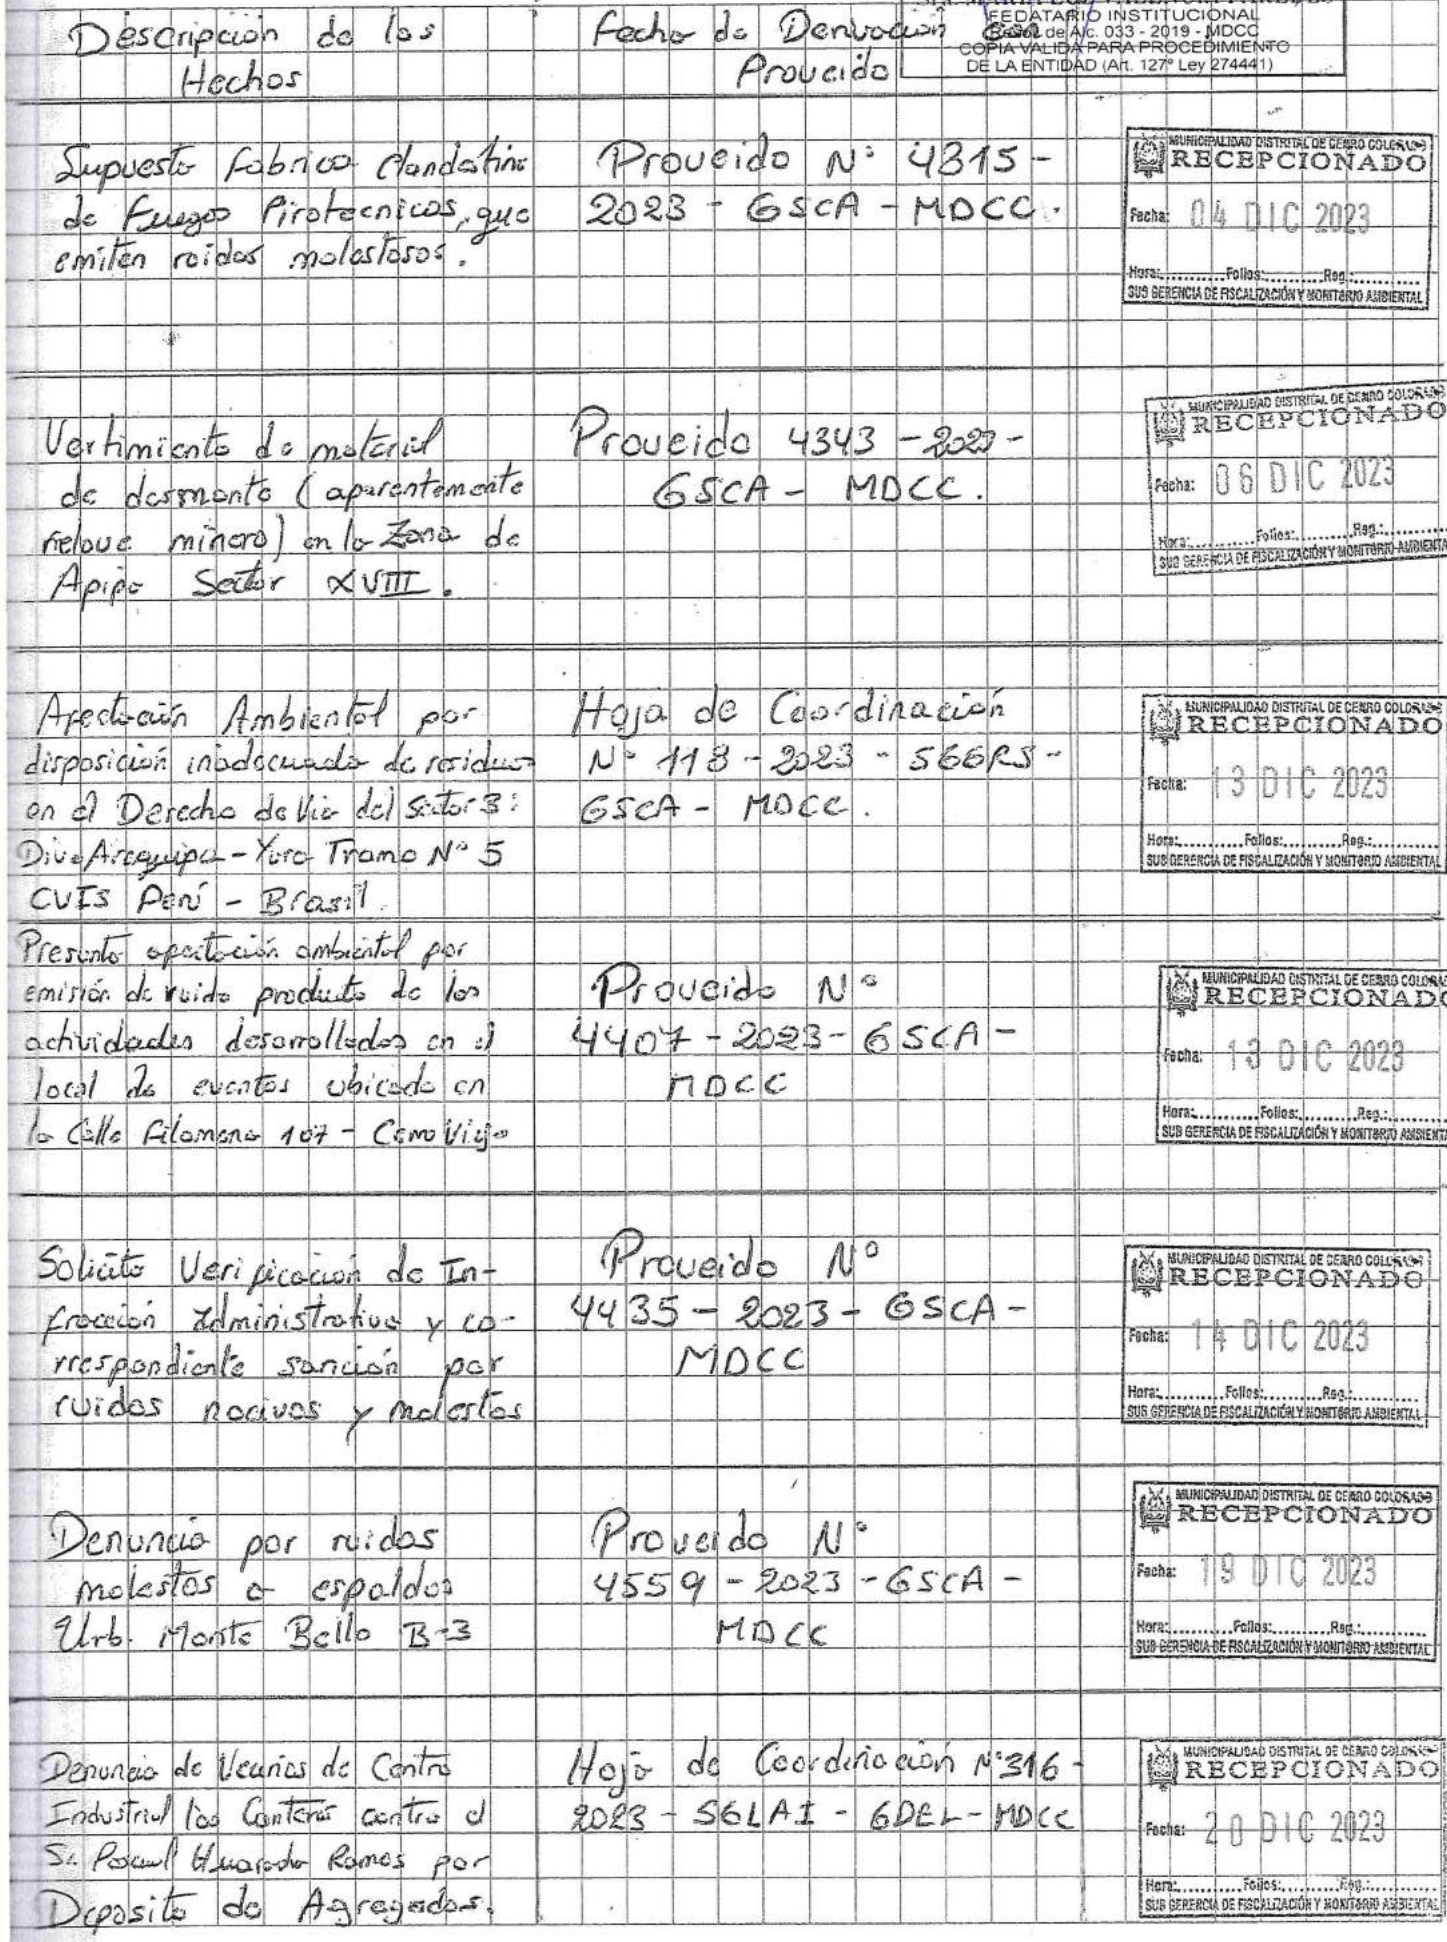 Descripción de los
Hechos
Fecha de Derivación con
Proveido
FEDATARIO INSTITUCIONAL
de Alc. 033 - 2019 - MDCC
COPIA VALIDA PARA PROCEDIMIENTO
DE LA ENTIDAD (Art. 127° Ley 274441)
Supuesta fabrica Clandestina
de Fuegos Pirotecnicos, que
emiten roidos molostosos.
Proveido N° 4315 -
2023 - GSCA - MDCC.
MUNICIPALIDAD DISTRITAL DE CERRO COLORADO
RECEPCIONADO
Fecha: 04 DIC 2023
Hora:..........Folios:.........Reg.:..........
SUB GERENCIA DE FISCALIZACIÓN Y MONITORIO AMBIENTAL
Vertimiento de material
de desmonte (aparentemente
relave minero) en la Zona de
Apipa Sector XVIII.
Proveido 4343 - 2023 -
GSCA - MDCC.
MUNICIPALIDAD DISTRITAL DE CERRO COLORADO
RECEPCIONADO
Fecha: 06 DIC 2023
Hora:..........Folios:.........Reg.:..........
SUB GERENCIA DE FISCALIZACIÓN Y MONITORIO AMBIENTA
Afectación Ambiental por
disposición inadecuada de residuos
en el Derecho de Via del Sector 3:
Div. Arequipa - Yura Tramo N° 5
CVIS Perú - Brasil.
Hoja de Coordinación
N° 118 - 2023 - SGGRS -
GSCA - MDCC.
MUNICIPALIDAD DISTRITAL DE CERRO COLORADO
RECEPCIONADO
Fecha: 13 DIC 2023
Hora:..........Folios:.........Reg.:..........
SUB GERENCIA DE FISCALIZACIÓN Y MONITORIO AMBIENTAL
Presunta afectación ambiental por
emisión de ruido producto de las
actividades desarrolladas en el
local de eventos ubicado en
la Calle Filomena 107 - Cerro Viejo
Proveido N°
4407 - 2023 - GSCA -
MDCC
MUNICIPALIDAD DISTRITAL DE CERRO COLORA
RECEPCIONADO
Fecha: 13 DIC 2023
Hora:..........Folios:.........Reg.:..........
SUB GERENCIA DE FISCALIZACIÓN Y MONITORIO AMBIENTA
Solicita Verificación de In-
fracción Administrativa y co-
rrespondiente sanción por
ruidos nocivos y molestos
Proveido N°
4435 - 2023 - GSCA -
MDCC
MUNICIPALIDAD DISTRITAL DE CERRO COLORADO
RECEPCIONADO
Fecha: 14 DIC 2023
Hora:..........Folios:.........Reg.:..........
SUB GERENCIA DE FISCALIZACIÓN Y MONITORIO AMBIENTAL
Denuncia por ruidos
molestos a espaldas
Urb. Monte Bello B-3
Proveido N°
4559 - 2023 - GSCA -
MDCC
MUNICIPALIDAD DISTRITAL DE CERRO COLORADO
RECEPCIONADO
Fecha: 19 DIC 2023
Hora:..........Folios:.........Reg.:..........
SUB GERENCIA DE FISCALIZACIÓN Y MONITORIO AMBIENTAL
Denuncia de Vecinos de Centro
Industrial las Canteras contra el
Sr. Ramos por
Deposito de Agregados.
Hoja de Coordinación N° 316 -
2023 - SGLAI - GDEL - MDCC
MUNICIPALIDAD DISTRITAL DE CERRO COLORADO
RECEPCIONADO
Fecha: 20 DIC 2023
Hora:..........Folios:.........Reg.:..........
SUB GERENCIA DE FISCALIZACIÓN Y MONITORIO AMBIENTAL